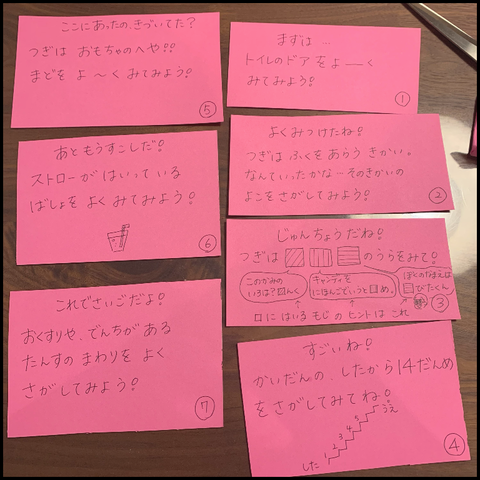 まずは…
トイレのドア を よ〜く
みてみよう!
①
よくみつけたね!
つぎは ふくをあらう きかい。
なんていったかな…そのきかいの
よこをさがしてみよう!
②
じゅんちょうだね!
つぎは □□□のうらをみて!
このかみの
いろは?□んく
キャンディを
にほんごでいうと□め。
ぼくのなまえは
□びたくん
□にはいる もじ の ヒントは これ
③
すごいね!
かいだんの、したから14だんめ
をさがしてみてね!
した 1 2 3 4 5 うえ
④
ここにあったの、きづいてた?
つぎは おもちゃのへや!!
まどを よ〜く みてみよう!
⑤
あともうすこしだ!
ストローが はいっている
ばしょを よくみてみよう!
⑥
これでさいごだよ!
おくすりや、でんちがある
たんすの まわりを よく
さがしてみよう!
⑦